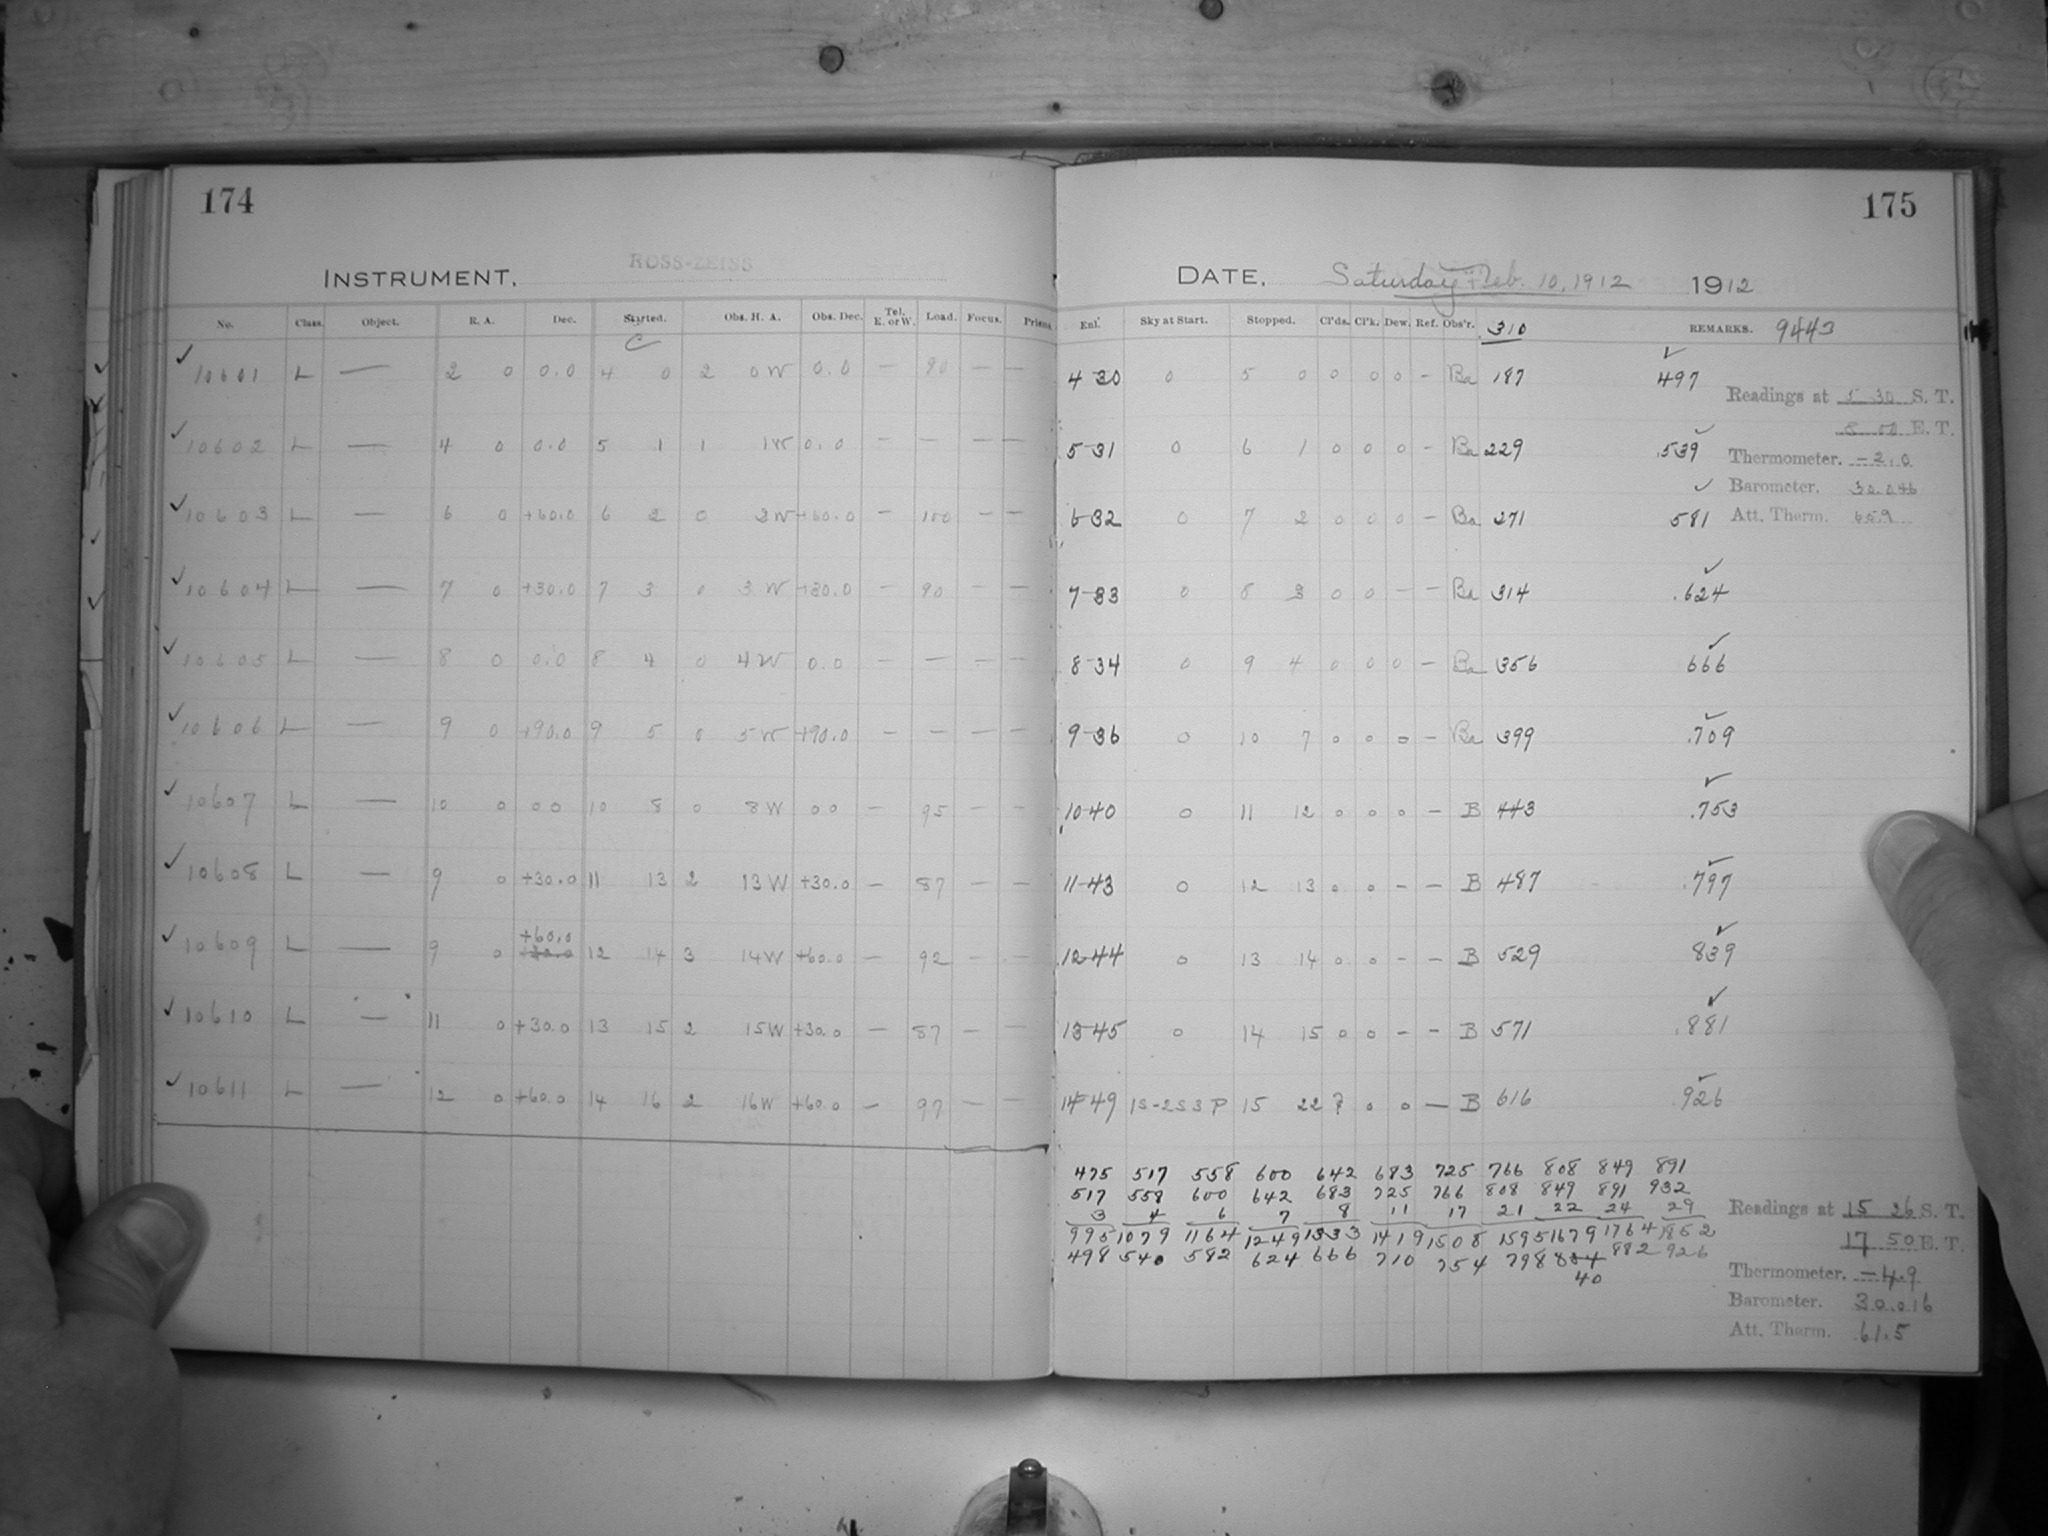 174
INSTRUMENT. ROSS-ZEISS
No. Class. Object. R. A. Dec. Started. Obs. H. A. Obs. Dec. Tel. E. or W. Load. Focus. Prisms
C
✓ 10601 L — 2 0 0.0 4 0 2 0W 0.0 — 90 — —
✓ 10602 L — 4 0 0.0 5 1 1 1W 0.0 — — — —
✓ 10603 L — 6 0 +60.0 6 2 0 2W +60.0 — 100 — —
✓ 10604 L — 7 0 +30.0 7 3 0 3W +30.0 — 90 — —
✓ 10605 L — 8 0 0.0 8 4 0 4W 0.0 — — — —
✓ 10606 L — 9 0 +90.0 9 5 0 5W +90.0 — — — —
✓ 10607 L — 10 0 0 0 10 8 0 8W 0 0 — 95 — —
✓ 10608 L — 9 0 +30.0 11 13 2 13W +30.0 — 87 — —
✓ 10609 L — 9 0 +60.0 12 14 3 14W +60.0 — 92 — —
✓ 10610 L — 11 0 +30.0 13 15 2 15W +30.0 — 87 — —
✓ 10611 L — 12 0 +60.0 14 16 2 16W +60.0 — 97 — —
175
DATE, Saturday Feb. 10, 1912 1912
Enl. Sky at Start. Stopped. Cl'ds. Cl'k. Dew. Ref. Obs'r. 310 REMARKS. 9443
4-30 0 5 0 0 0 0 — Ba 187 497 ✓
Readings at 5 30 S. T.
8 00 E. T.
5-31 0 6 1 0 0 0 — Ba 229 .539 ✓
Thermometer. -2.0
Barometer. 30.046
6-32 0 7 2 0 0 0 — Ba 271 581 ✓
Att. Therm. 65.9
7-33 0 8 3 0 0 — — Ba 314 .624 ✓
8-34 0 9 4 0 0 0 — Ba 356 666 ✓
9-36 0 10 7 0 0 0 — Ba 399 .709 ✓
10-40 0 11 12 0 0 0 — B 443 .753 ✓
11-43 0 12 13 0 0 — — B 487 .797 ✓
12-44 0 13 14 0 0 — — B 529 839 ✓
13-45 0 14 15 0 0 — — B 571 .881 ✓
14-49 1S-2S3P 15 22 ? 0 0 — B 616 .926 ✓
475 517 558 600 642 683 725 766 808 849 891
517 558 600 642 683 725 766 808 849 891 932
3 4 6 7 8 11 17 21 22 24 29
995 1079 1164 1249 1333 1419 1508 1595 1679 1764 1852
498 540 582 624 666 710 754 798 834 882 926
40
Readings at 15 26 S. T.
17 50 E. T.
Thermometer. -4.9
Barometer. 30.016
Att. Therm. 61.5